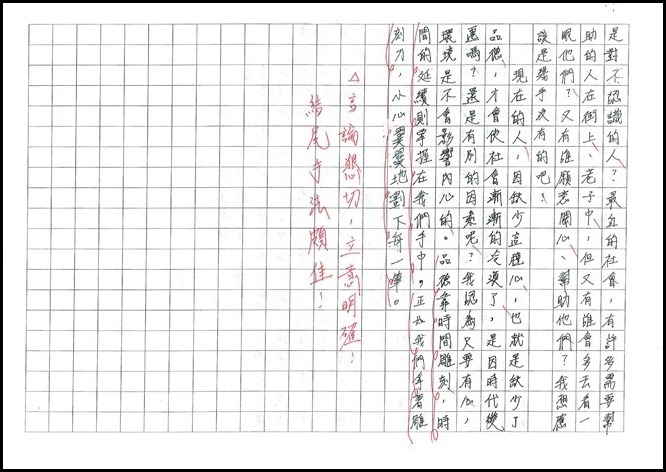 是對不認識的人?最近的社會,有許多需要幫
助的人在街上、老子中,但又有誰會多去看一
眼他們?又有誰願意關心、幫助他們?我想應
該是幾乎沒有的吧!
現在的人,因缺少這種心,也就是缺少了
品德,才會使社會漸漸的冷漠了,是因時代變
遷嗎?還是有別的因素呢?我認為只要有心,
環境是不會影響內心的。品德靠時間雕刻,時
間的延續則掌握在我們手中。正如我們拿著雕
刻刀,小心翼翼地劃下每一筆。
△言論懇切,立意明確!
結尾手法頗佳!